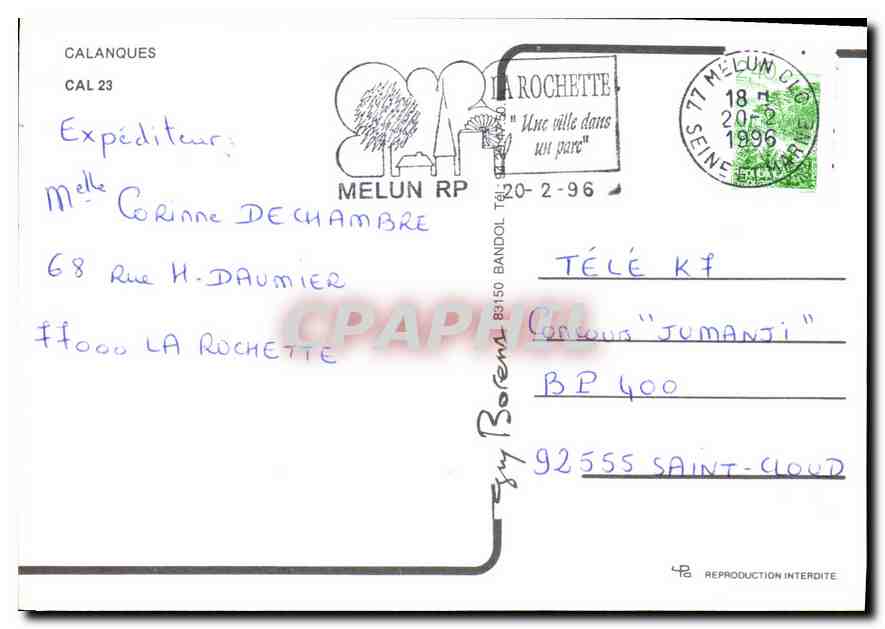 CALANQUES
CAL 23
Expéditeur:
Melle Corinne DECHAMBRE
68 Rue H-DAUMIER
77000 LA ROCHETTE
LA ROCHETTE
"Une ville dans
un parc"
MELUN RP 20-2-96
77 MELUN CLO
18 H
20-2
1996
SEINE ET MARNE
TÉLÉ K7
Concours "JUMANJI"
BP 400
92555 SAINT-CLOUD
Guy Borens
83150 BANDOL Tél.
CPAPHIL
REPRODUCTION INTERDITE